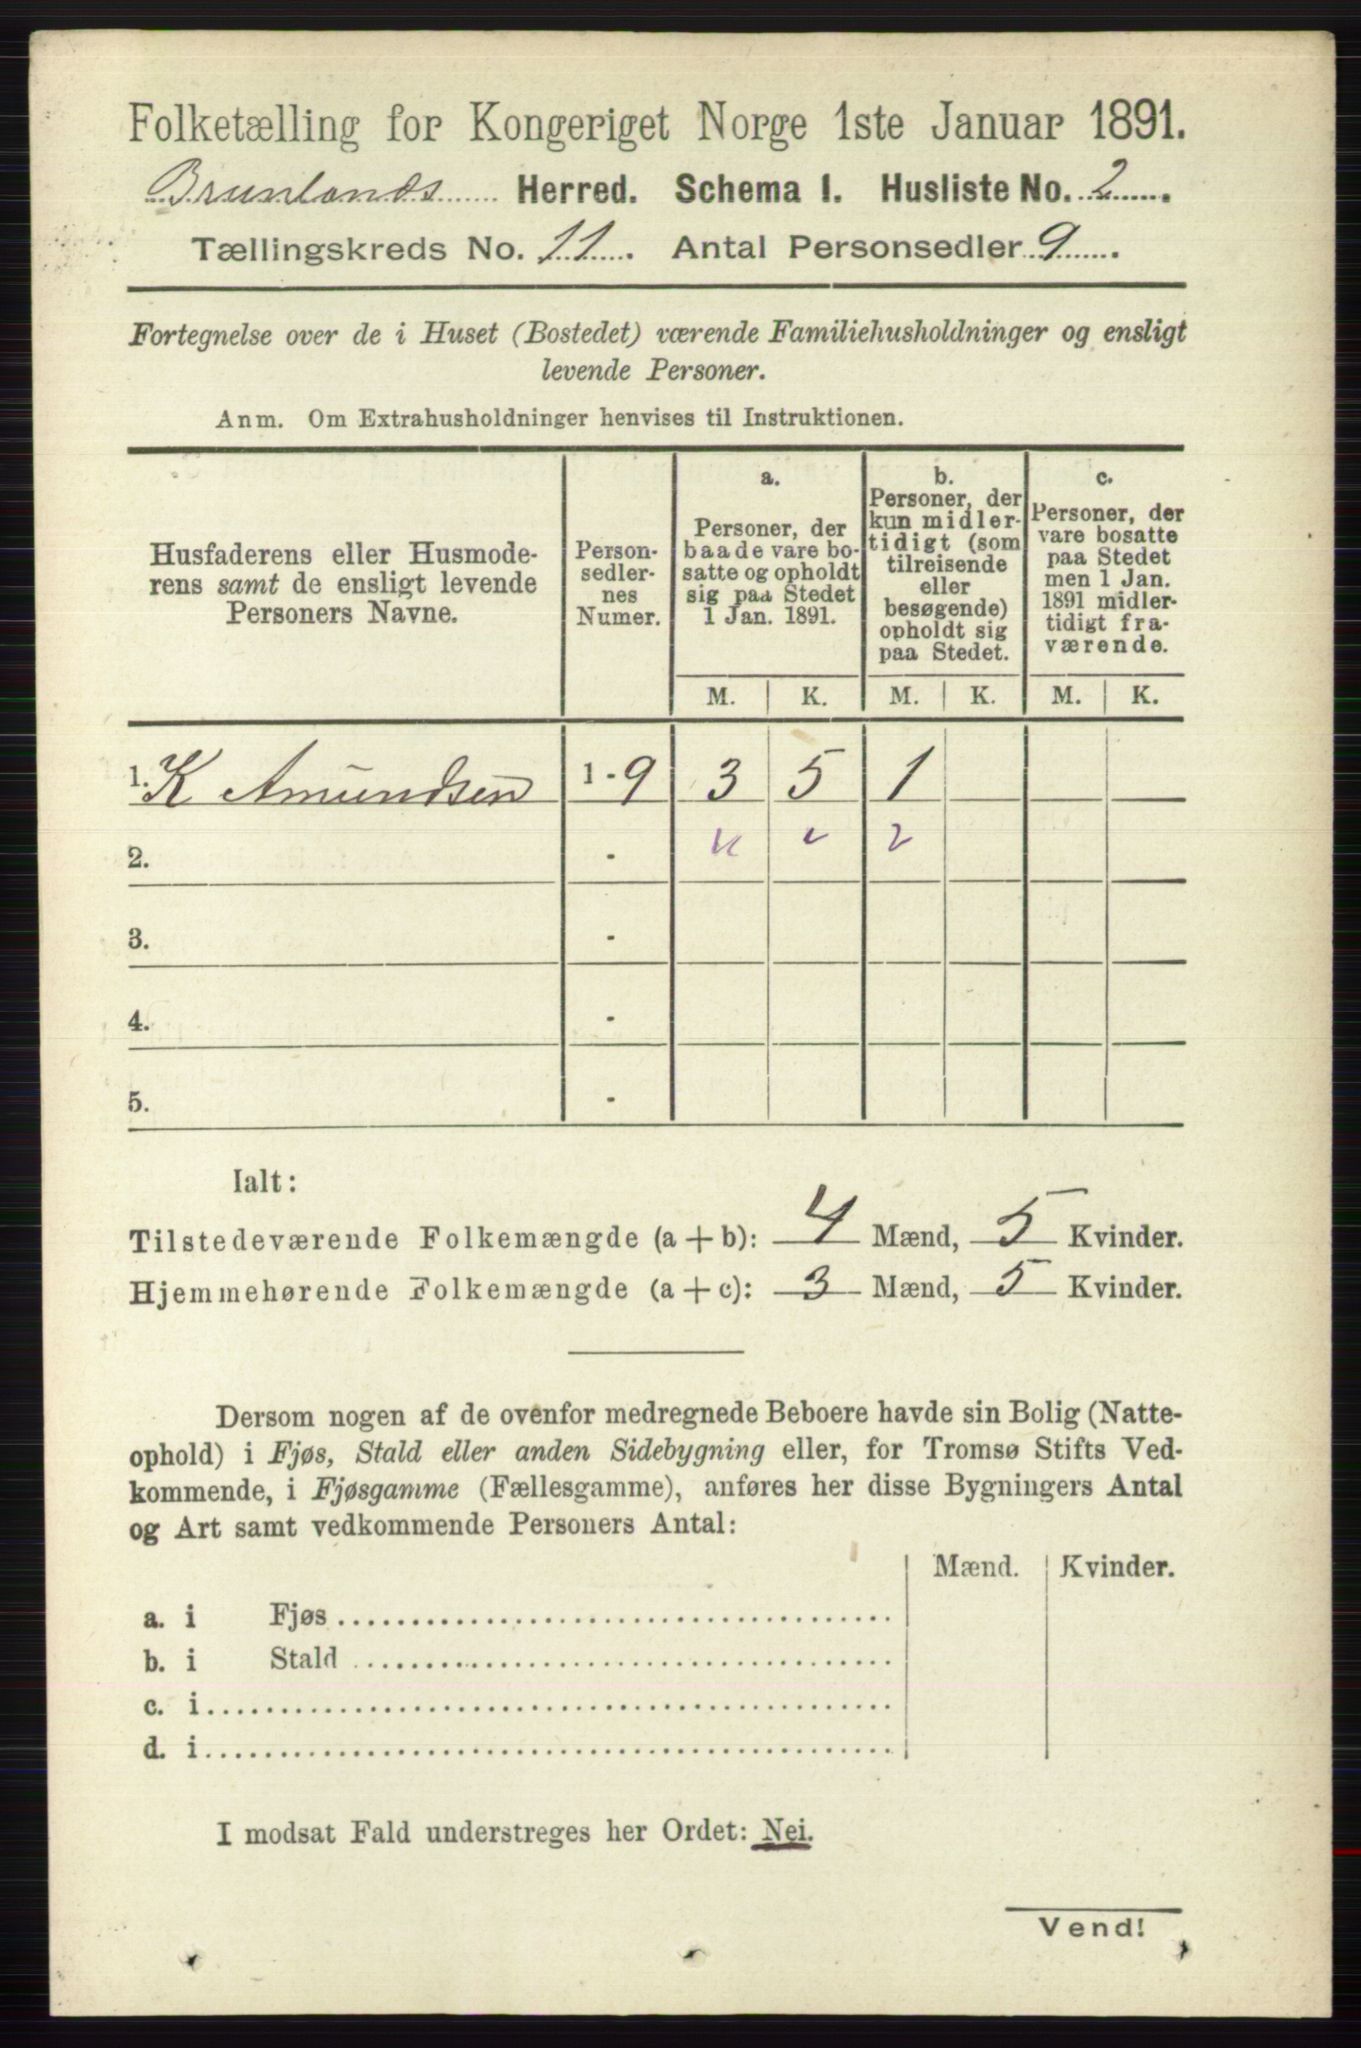 Folketælling for Kongeriget Norge 1ste Januar 1891.
Brunlanæs Herred. Schema I. Husliste No. 2
Tællingskreds No. 11. Antal Personsedler 9.
Fortegnelse over de i Huset (Bostedet) værende Familiehusholdninger og ensligt
levende Personer.
Anm. Om Extrahusholdninger henvises til Instruktionen.
Husfaderens eller Husmode-
rens samt de ensligt levende
Personers Navne.
Person-
sedler-
nes
Numer.
a.
Personer, der
baade vare bo-
satte og opholdt
sig paa Stedet
1 Jan. 1891.
b.
Personer, der
kun midler-
tidigt (som
tilreisende
eller
besøgende)
opholdt sig
paa Stedet.
c.
Personer, der
vare bosatte
paa Stedet
men 1 Jan.
1891 midler-
tidigt fra-
værende.
M. K. M. K. M. K.
1. K Amundsen 1 - 9 3 5 1
2. -
3. -
4. -
5. -
Ialt:
Tilstedeværende Folkemængde (a + b): 4 Mænd, 5 Kvinder.
Hjemmehørende Folkemængde (a + c): 3 Mænd, 5 Kvinder.
Dersom nogen af de ovenfor medregnede Beboere havde sin Bolig (Natte-
ophold) i Fjøs, Stald eller anden Sidebygning eller, for Tromsø Stifts Ved-
kommende, i Fjøsgamme (Fællesgamme), anføres her disse Bygningers Antal
og Art samt vedkommende Personers Antal:
Mænd. Kvinder.
a. i Fjøs
b. i Stald
c. i
d. i
I modsat Fald understreges her Ordet: Nei.
Vend!